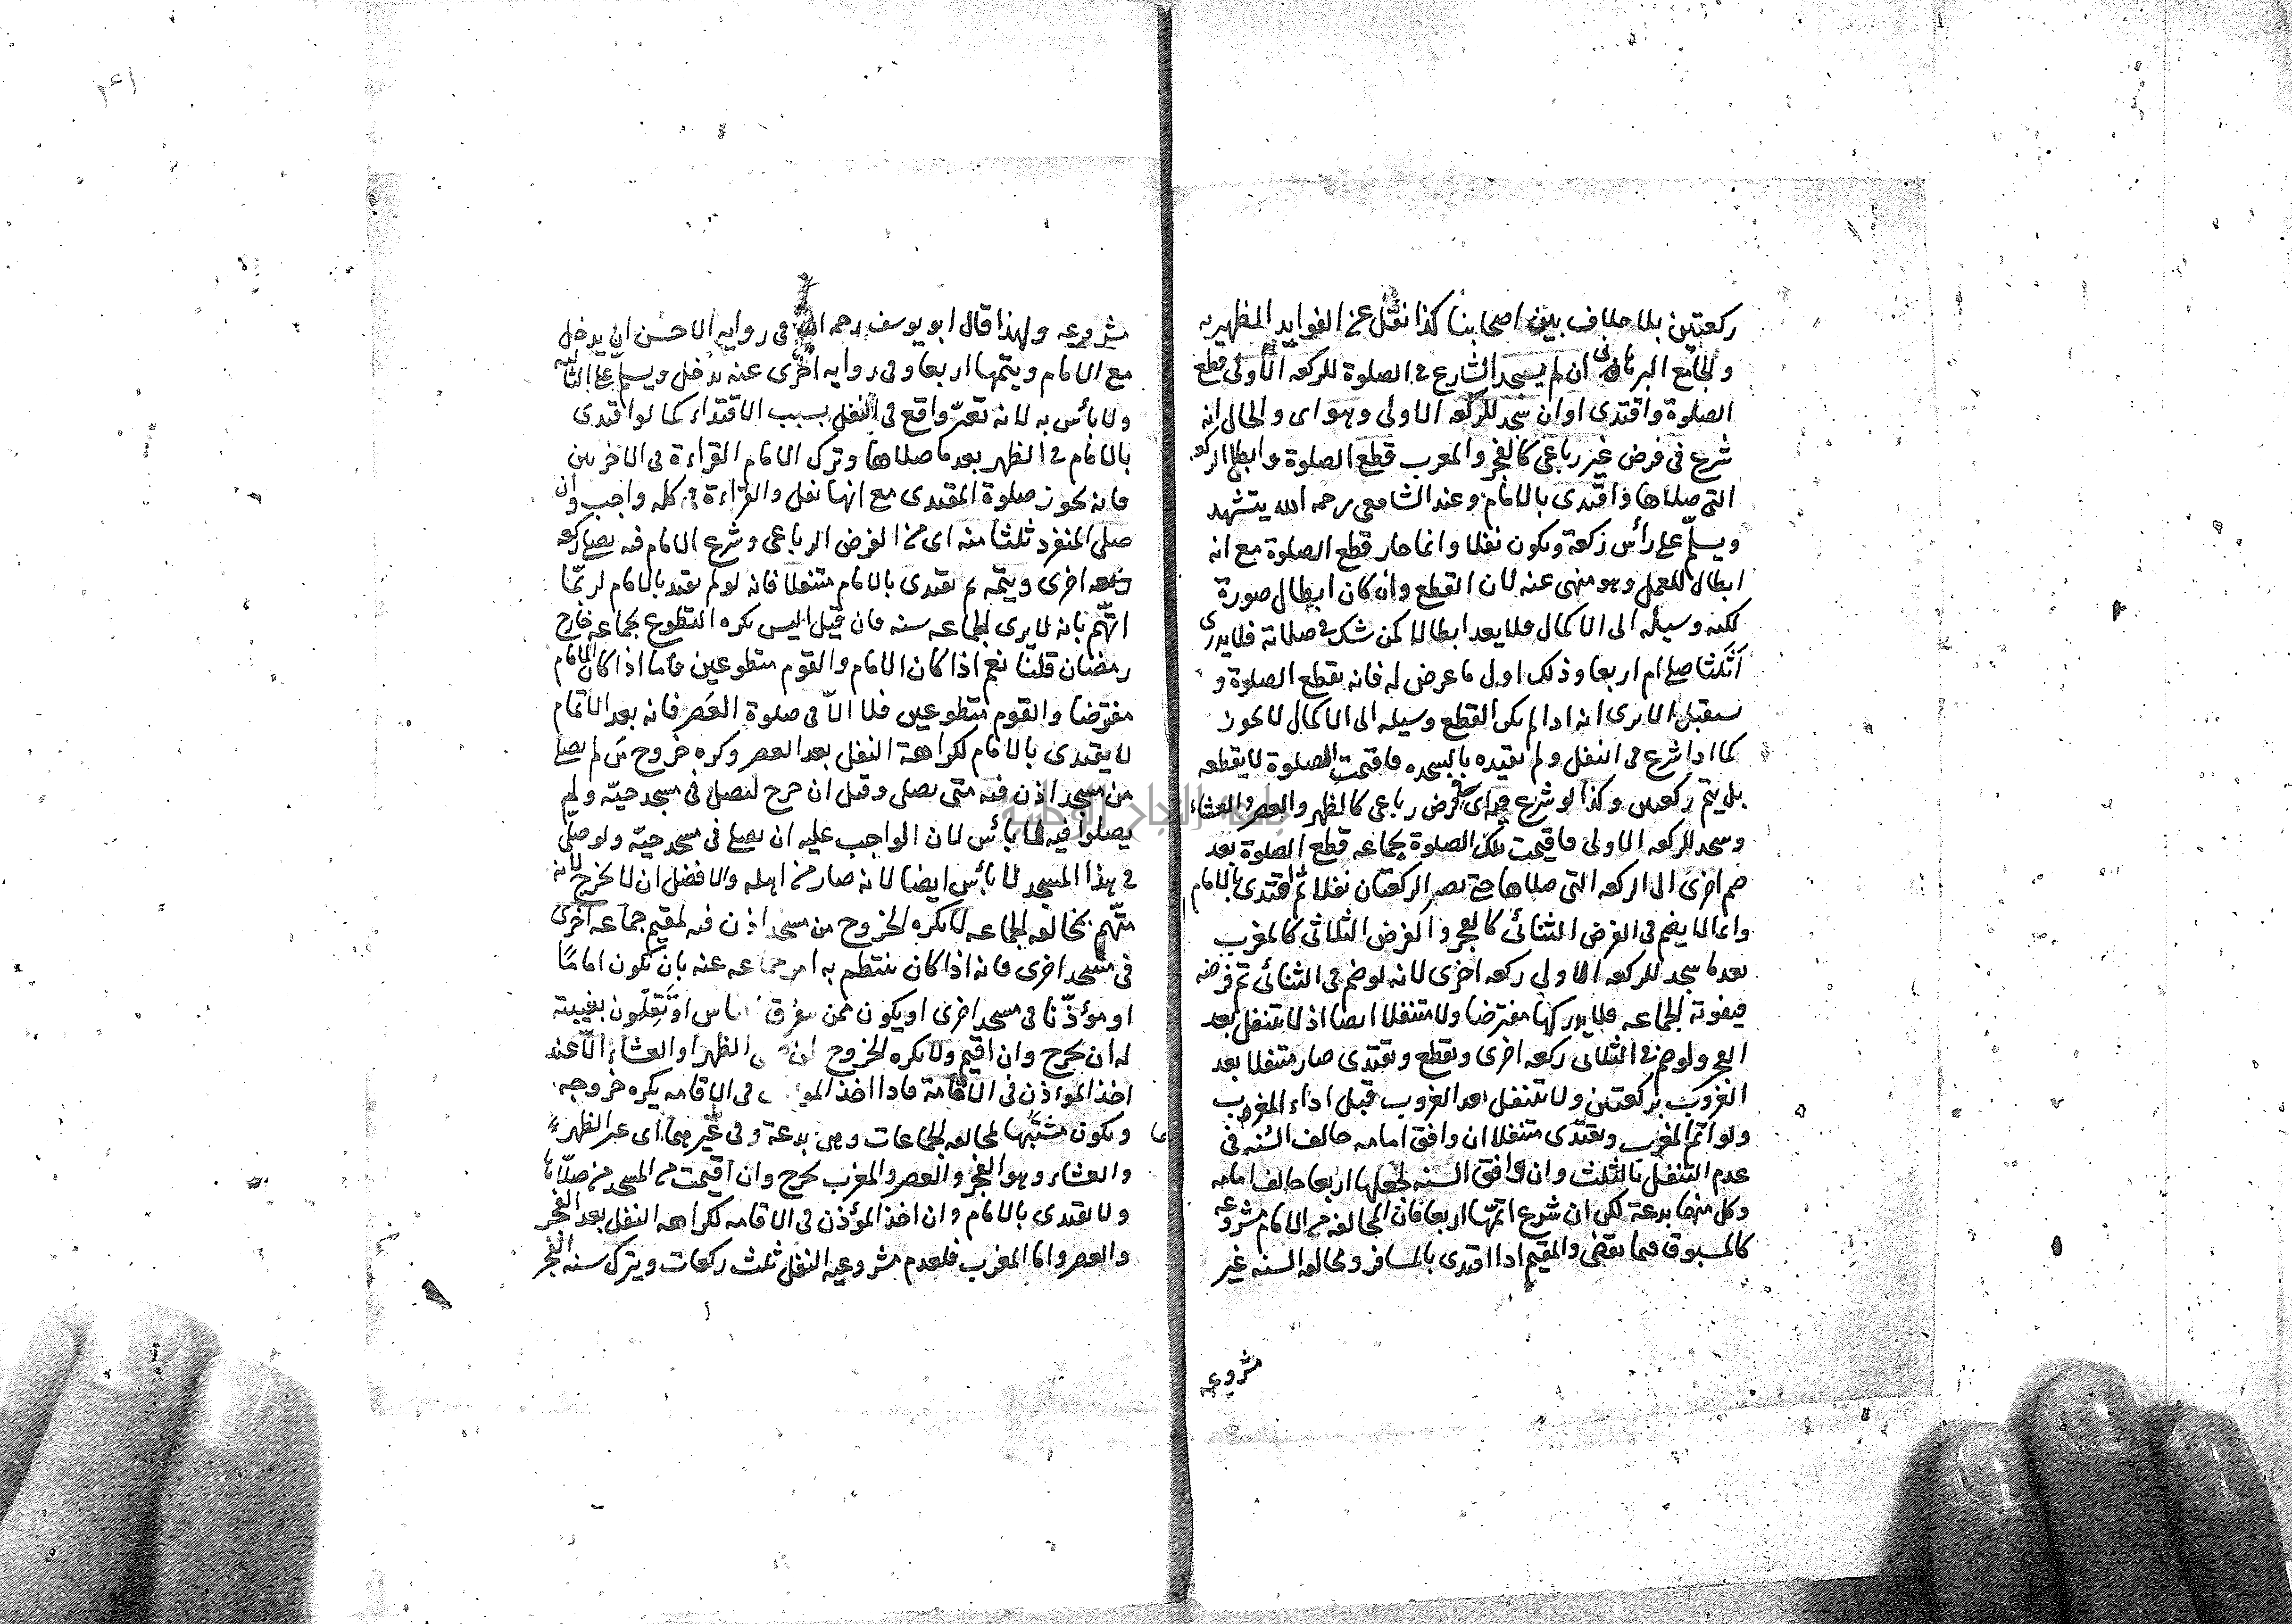 ركعتين بلا خلاف بين اصحابنا كذا نقل عن الفوايد الظهيريه
والجامع البرهانى ان لم يسجد الشارع فى الصلوة للركعه الاولى قطع
الصلوة واقتدى او ان سجد للركعه الاولى وهو اى والحال انه
شرع فى فرض غير رباعى كالفجر والمغرب قطع الصلوة وابطل الركعه
التى صلاها واقتدى بالامام وعند الشافعى رحمه الله يتشهد
ويسلم على رأس ركعة ويكون نفلا وانما جاز قطع الصلوة مع انه
ابطال للعمل وهو منهى عنه لان القطع وان كان ابطال صورة
لكنه وسيله الى الاكمال فلا يعد ابطالا كمن شك فى صلاته فلا يدرى
اثلثا صلى ام اربعا وذلك اول ما عرض له فانه يقطع الصلوة و
يستقبل الا يرى انه اذا لم يكن القطع وسيله الى الاكمال لا يجوز
كما اذا شرع فى النفل ولم يقيده بالسجده فاقيمت الصلوة لا يقطعه
بل يتم ركعتين وكذا لو شرع فى اى فرض رباعى كالظهر والعصر والعشاء
وسجد للركعه الاولى فاقيمت تلك الصلوة بجماعه قطع الصلوة بعد
ضم اخرى الى الركعه التى صلاها حتى يصير الركعتان نفلا ثم اقتدى بالامام
وانما لا يضم فى الفرض الثنائى كالفجر والفرض الثلاثى كالمغرب
بعد ما سجد للركعه الاولى ركعه اخرى لانه لو ضم فى الثنائى تم فرضه
فيفوته الجماعه فلا يدركها مفترضا ولا متنفلا ايضا اذ لا يتنفل بعد
الفجر ولو ضم فى الثلاثى ركعه اخرى ويقطع ويقتدى صار متنفلا بعد
الغروب بركعتين ولا يتنفل بعد الغروب قبل اداء المغرب
ولو اتم المغرب ويقتدى متنفلا ان وافق امامه خالف السنه فى
عدم التنفل بالثلث وان وافق السنه بجعلها اربعا خالف امامه
وكل منهما بدعة لكن ان شرع اتمها اربعا فان المخالفه مع الامام مشروعه
كالمسبوق فيما يقضى والمقيم اذا اقتدى بالمسافر ومخالفه السنه غير
مشروعه
مشروعه ولهذا قال ابو يوسف رحمه الله فى روايه الاحسن ان يدخل
مع الامام ويتمها اربعا وفى روايه اخرى عنه يدخل ويسلم على الثالثه
ولا بأس به لانه تغير واقع فى النفل بسبب الاقتداء كما لو اقتدى
بالامام فى الظهر بعد ما صلاها وترك الامام القراءة فى الاخريين
فانه يجوز صلوة المقتدى مع انها نفل والقراءة فى كله واجب وان
صلى المنفرد ثلثا منه اى من الفرض الرباعى وشرع الامام فيه يصلى ركعه
ركعه اخرى ويتمه ثم يقتدى بالامام متنفلا فانه لو لم يقتد بالامام لربما
اتهم بانه لا يرى الجماعه سنه فان قيل اليس يكره التطوع بجماعه خارج
رمضان قلنا نعم اذا كان الامام والقوم متطوعين فاما اذا كان الامام
مفترضا والقوم متطوعين فلا الا فى صلوة العصر فانه بعد الاتمام
لا يقتدى بالامام لكراهة النفل بعد العصر وكره خروج من لم يصل
من مسجد اذن فيه حتى يصلى وقيل ان خرج ليصلى فى مسجد حيه ولم
يصلوا فيه لا بأس لان الواجب عليه ان يصلى فى مسجد حيه ولو صلى
فى هذا المسجد لا بأس ايضا لانه صار من اهله والافضل ان لا يخرج لانه
متهم بمخالفه الجماعه لا يكره الخروج من مسجد اذن فيه لمقيم جماعه اخرى
فى مسجد اخرى فانه اذا كان ينتظم به امر جماعه عنه بان يكون اماما
او مؤذنا فى مسجد اخرى او يكون ممن يتفرق الناس او تقلون بغيبته
له ان يخرج وان اقيم ولا يكره الخروج لمن صلى الظهر او العشاء الا عند
اخذ المؤاذن فى الاقامة فاذا اخذ فى الاقامه يكره خروجه
ويكون متشبها لمخالفه الجماعات وهى بدعة وفى غيرهما اى غير الظهر
والعشاء وهو الفجر والعصر والمغرب يخرج وان اقيمت من المسجد من صلاها
ولا يقتدى بالامام وان اخذ المؤذن فى الاقامه لكراهه النفل بعد الفجر
والعصر واما المغرب فلعدم مشروعيه النفل ثلث ركعات ويترك سنه الفجر